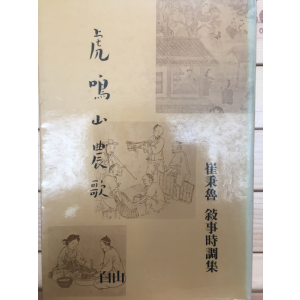 虎鳴山農歌
崔秉魯 敍事時調集
白山